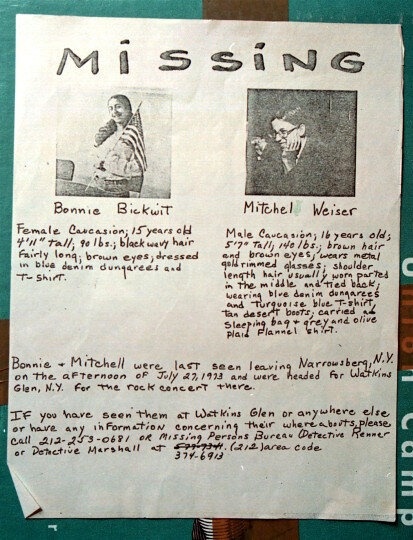 MiSSiNG
Bonnie Bickwit
Female Caucasion; 15 years old
4'11" tall; 90 lbs.; black wavy hair
fairly long; brown eyes; dressed
in blue denim dungarees and
T-shirt.
Mitchel Weiser
Male Caucasion; 16 years old;
5'7" tall; 140 lbs.; brown hair
and brown eyes; wears metal
gold rimmed glasses; shoulder
length hair usually worn parted
in the middle and tied back;
wearing blue denim dungarees
and turquoise blue T-shirt,
tan desert boots; carried a
sleeping bag + grey and olive
plaid flannel shirt.
Bonnie + Mitchell were last seen leaving Narrowsberg, N.Y.
on the afternoon of July 27, 1973 and were headed for Watkins
Glen, N.Y. for the rock concert there.
IF you have seen them at Watkins Glen or anywhere else
or have any information concerning their where abouts, please
call 212-253-0681 or Missing Persons Bureau (Detective Kenner
or Detective Marshall at (212) area code
374-6913
Camp